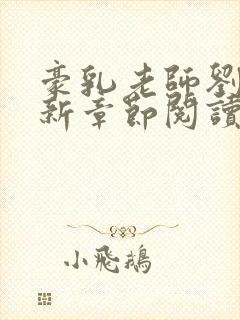 豪乳老師劉
新章節閱讀
小飛鵝